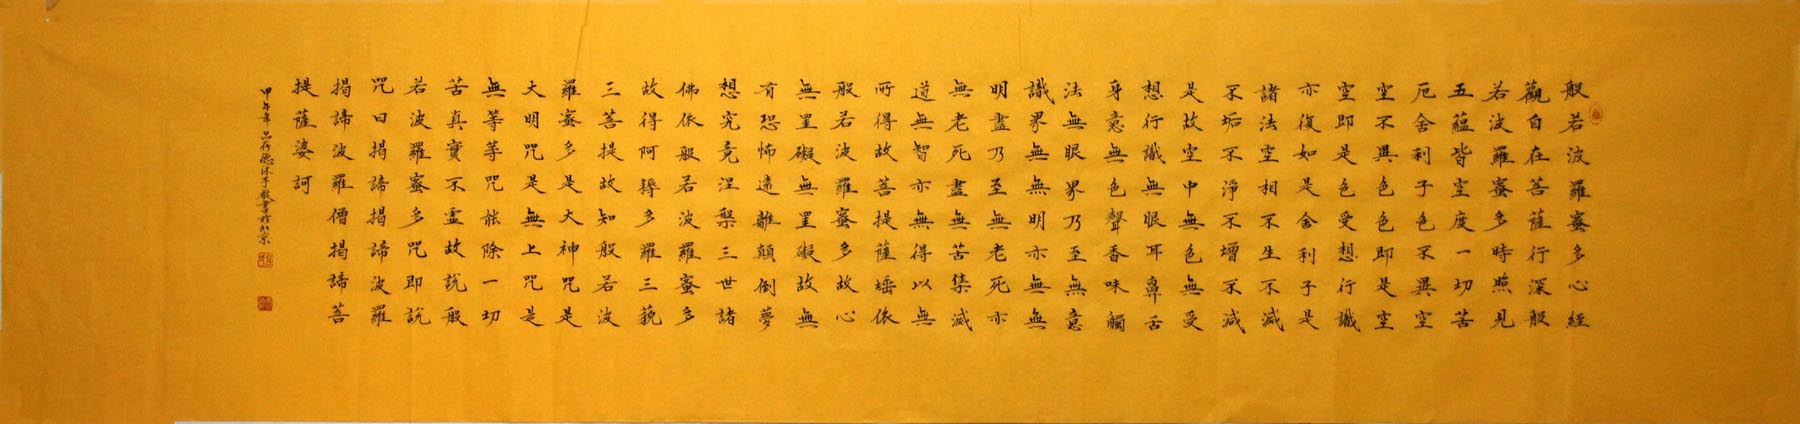 般若波羅蜜多心經
觀自在菩薩行深般
若波羅蜜多時照見
五蘊皆空度一切苦
厄舍利子色不異空
空不異色色即是空
空即是色受想行識
亦復如是舍利子是
諸法空相不生不滅
不垢不淨不增不減
是故空中無色無受
想行識無眼耳鼻舌
身意無色聲香味觸
法無眼界乃至無意
識界無無明亦無無
明盡乃至無老死亦
無老死盡無苦集滅
道無智亦無得以無
所得故菩提薩埵依
般若波羅蜜多故心
無罣礙無罣礙故無
有恐怖遠離顛倒夢
想究竟涅槃三世諸
佛依般若波羅蜜多
故得阿耨多羅三藐
三菩提故知般若波
羅蜜多是大神咒是
大明咒是無上咒是
無等等咒能除一切
苦真實不虛故說般
若波羅蜜多咒即說
咒曰揭諦揭諦波羅
揭諦波羅僧揭諦菩
提薩婆訶
甲午年呂存德沐手敬書於北京